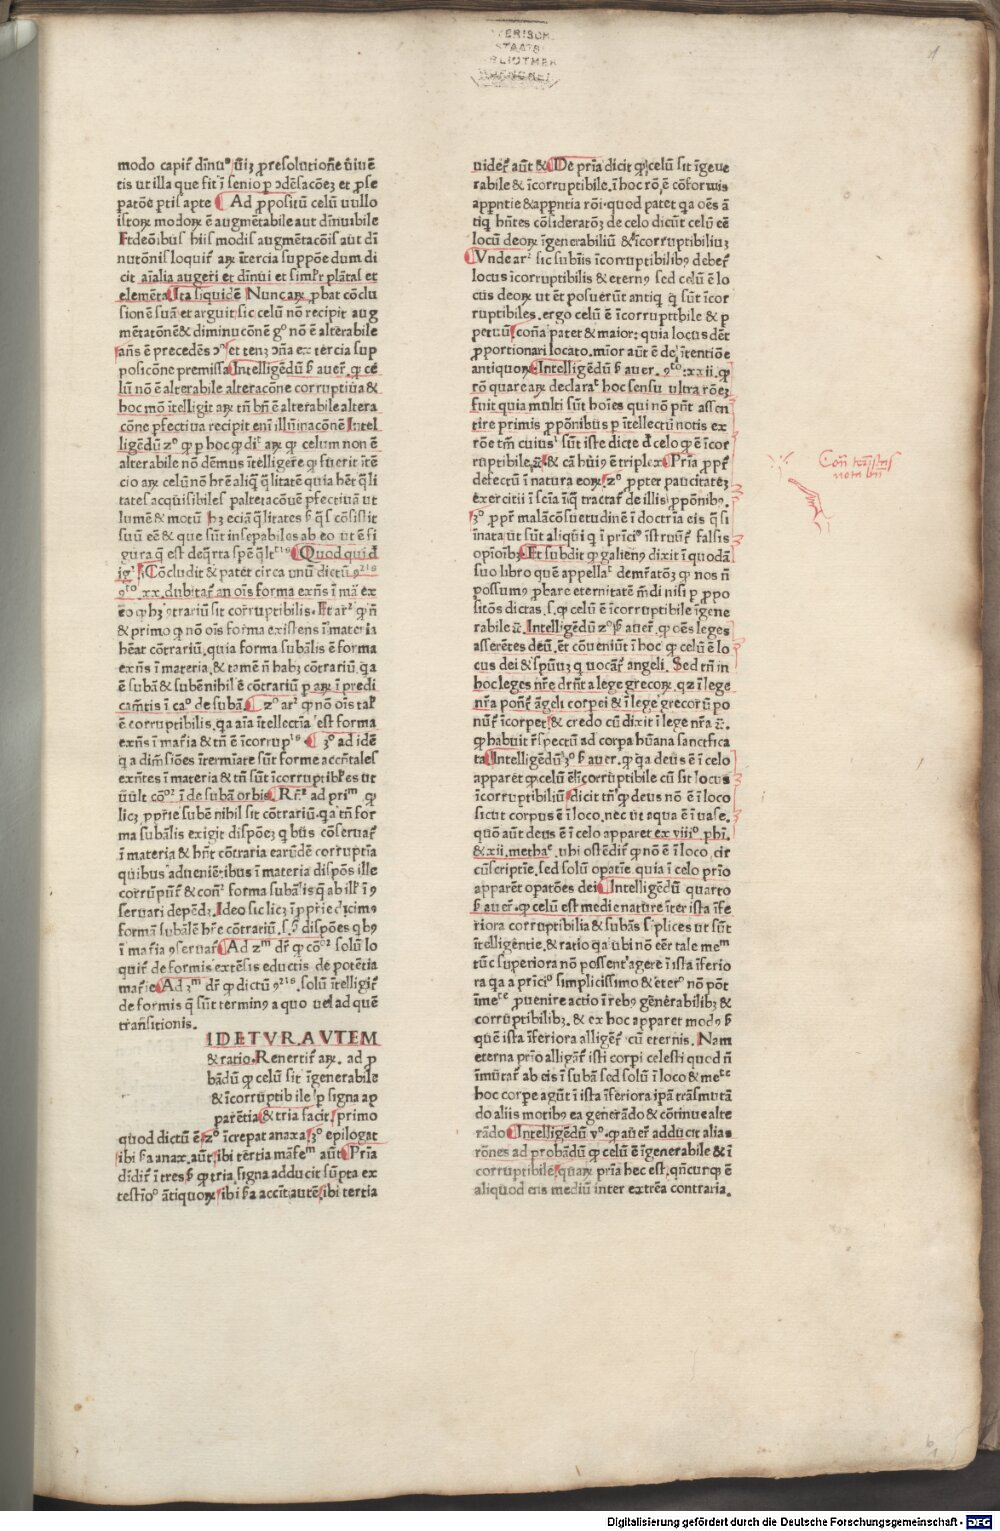 modo capit᷑ dīnu⁹ ul̄iꝫ ꝑ resolutionē uīuē
tis ut illa que fit ī senio ꝑ ↄdēsacōeꝫ et ꝑ se
patōē ꝑtiſ apte Ad ꝓpositū celū nullo
istoꝝ modoꝝ ē augmētabile aut dīnuibile
Et de oībus hiis modis augmētacōis aut dī
nutōnis loquit᷑ aꝝ ītercia suppōe dum di
cit aīalia augeri et dīnui et simꝉr plātas et
elemēta Ita siquidē Nunc aꝝ ꝓbat cōclu
sionē suā et arguit sic celū nō recipit aug
mētatōnē & diminucōnē g° nō ē alterabile
an̄s ē precedēs ↄ° et tenꝫ ↄn̄a ex tercia sup
posicōne premissa Intelligēdū ẜ auer᷑. ꝙ ce
lū nō ē alterabile alteracōne corruptiua &
hoc mō ītelligit aꝝ tn̄ bn̄ ē alterabile altera
cōne ꝑfectiua recipit eni illuminacōnē Intel
ligēdū z° ꝙ ꝑ hoc ꝙ dic᷑ aꝝ ꝙ celum non ē
alterabile nō dēmus ītelligere ꝙ fuerit ītē
cio aꝝ celū nō hr̄e aliq̄ q̄litatē quia hēt q̄li
tates acq̇sibiles ꝑ altetacōuē ꝑfectiuā ut
lumē & motū hꝫ eciā q̄litates ẜ q̄s cōsistit
suū eē & que sūt insepabiles ab eo ut ē si
gura q̄ est de q̄rta spē q̄lᵗᵗⁱˢ Quod qui d̄
ig᷑ Cōcludit & patet circa unū dictū ꝯᵗᵒʳⁱˢ
ꝯᵗᵒ. xx. dubitat᷑ an oīs forma exn̄s ī mā ex
eo ꝙ hꝫ ꝯtrariū sit corruptibilis. Et arᶻ ꝙ n̄
& primo ꝙ nō oīs forma existens ī materia
hēat cōtrariū. quia forma subālis ē forma
exn̄s ī materia & tamē n̄ habꝫ cōtrariū. q̇a
ē subā & sube nihil ē cōtrariū ꝑ aꝝ ī predi
camētis ī ca° de subā. z° arᶻ ꝙ nō oīs tal̄
ē corruptibilis. q̇a aīa ītellectīa est forma
exn̄s ī mat᷑ia & tn̄ ē īcorrupᵗⁱˢ. 3° ad idē
q̇a dimēsiōes ītermiate sūt forme accn̄tales
exn̄tes ī materia & tn̄ sūt īcorruptibl̄es ut
uult cō°ʳ ī de subā orbis Rn̄ᶻ ad priᵐ ꝙ
licꝫ ꝓprie sube nihil sit cōtrariū. q̇a tn̄ for
ma subālis exigit dispōeꝫ q̇bus cōseruat᷑
ī materia & hn̄t cōtraria earūdē corruptīa
quibus aduenie:tibus ī materia dispōs ille
corrūpūt᷑ & con̄ᶻ forma subālis q̄ ab ill̄ ī ꝯ
seruari depēdꝫ. Ideo sic licꝫ īꝓprie dicimꝰ
formā subālē hr̄e cōtrariū. s. ẜ dispōes q̇bꝰ
ī mat᷑ia ꝯseruat᷑ Ad zᵐ dr̄ ꝙ cō°ʳ solū lo
quit᷑ de formis extēsis eductis de potētia
mat᷑ie Ad 3ᵐ dr̄ ꝙ dictū ꝯᵗᵒʳⁱˢ. solū ītelligit᷑
de formis q̄ sūt terminꝰ a quo uel ad quē
transitionis.
IDETVR. AVTEM
& ratio. Reuertit᷑ aꝝ. ad ꝓ
bādū ꝙ celū sit īgenerabile
& īcorruptibile ꝑ signa ap
parētia & tria facit. primo
quod dictū ē. z° īcrepat anaxa. 3° epilogat
ibi ẜa anax. aūt. ibi tertia māfeᵐ aūt Prīa
diuidit᷑ ī tres ẜ ꝙ tria signa adducit sūpta ex
testīo° ātiquoꝝ. ibi ẜa accīt autē. ibi tertia
uidet᷑ aūt & De prīa dicit ꝙ celū sit īgeue
rabile & īcorruptibile. ī hoc rō ē cōformis
appn̄tie & appn̄tia rōi. quod patet q̇a oēs ā
tiq̇ hn̄tes cōsideratōꝫ de celo dicūt celū eē
locū deoꝝ īgenerabiliū & īcorruptibiliuꝫ
Vnde arᶻ sic subīis īcorruptibilibꝰ debet᷑
locus īcorruptibilis & eternꝰ sed celū ē lo
cus deoꝝ ut ēt posuerūt antiq̇ q̇ sūt īcor
ruptibiles. ergo celū ē īcorruptibile & ꝑ
petuū. con̄a patet & maior: quia locus dēt
ꝓportionari locato. mīor aūt ē de ītentiōe
antiquoꝝ. Intelligēdū ẜ auer. ꝯᵗᵒ: xxii. ꝙ
rō quare aꝝ declaraᵗ hoc sensu ultra rōeꝫ
fuit quia multi sūt hoīes qui nō pn̄t assen
tire primis ꝓpōnibus ꝑ ītellectū notis ex
rōe tm̄ cuiusᶻ sūt iste dicte d̄ celo ꝙ ē īcor
ruptibile. ꝛc̄ & cā huiꝰ ē triplex Prīa ꝓpt᷑
defectū ī natura eoꝝ. z° ꝓpter paucitateꝫ
exercitii ī sciā īq̇ tractat᷑ de illis ꝓpōnibꝰ.
3° ꝓpt᷑ malā cōsuetudinē ī doctrīa eis q̄ si
īnata ut sūt aliq̇ui q̇ ī prīci° īstruūt᷑ falsis
opīoibꝫ. Et subdit ꝙ galienꝰ dixit ī quodā
suo libro quē appellaᵗ demr̄atōꝫ ꝙ nos n̄
possumꝰ ꝓbare eternitatē mūdi nisi ꝑ ꝓpo
sitōs dictas. s. ꝙ celū ē īcorruptibile īgene
rabile ꝛc̄. Intelligēdū z° ẜ auer᷑. ꝙ oēs leges
asserētes deū. et cōueniūt ī hoc ꝙ celū ē lo
cus dei & spūuꝫ q̇ uocāt᷑ angeli. Sed tn̄ in
hoc leges nr̄e dr̄nt a lege grecoꝝ. qꝫ ī lege
nr̄a ponūt᷑ āgeli corpei & ī lege grecorū po
nūt᷑ īcorpei. & credo cū dixit ī lege nr̄a ꝛc̄.
ꝙ habuit r̄spectū ad corpa hūana sanctifica
ta Intelligēdū 3° ẜ auer. ꝙ q̇a deus ē ī celo
apparet ꝙ celū ē īcorruptibile cū sit locus
īcorruptibiliū. dicit tn̄ ꝙ deus nō ē ī loco
sicut corpus ē ī loco. nec ut aqua ē ī uase.
quō aūt deus ē ī celo apparet ex viii° phī.
& xii. methaᵉ. ubi ostēdit᷑ ꝙ nō ē ī loco. cir
cūscriptīe. sed solū opatīe. quia ī celo prīo
apparēt opatōes dei. Intelligēdū quarto
ẜ auer᷑. ꝙ celū est medie nature īter ista īfe
riora corruptibilia & subās sīplices ut sūt
ītelligētie. & ratio q̇a ubi nō eēr tale meᵐ
tūc superiora nō possent agere ī ista īferio
ra q̇a a prīci° simplicissimo & eter° nō pōt
īmeᵗᵉ ꝓuenire actio ī rebꝰ gēnērabilibꝫ &
corruptibilibꝫ. & ex hoc apparet modꝰ ẜ
quē ista īferiora alliget᷑ cū eternis. Nam
eterna prīo alligāt᷑ isti corpi celesti quod n̄
īmūtat᷑ ab eis ī subā sed solū ī loco & meᵗᵉ
hoc corpe agūt ī ista īferiora ipā trāsmutā
do aliis motibꝰ ea generādo & cōtinue alte
rādo Intelligēdū v°. ꝙ auer᷑ adducit alias
rōnes ad probādū ꝙ celū ē īgenerabile & ī
corruptibile. quaꝝ prīa hec est. qn̄cunqꝫ ē
aliquod ens mediū inter extrēa contraria.
1
nota bn̄
Digitalisierung gefördert durch die Deutsche Forschungsgemeinschaft - DFG